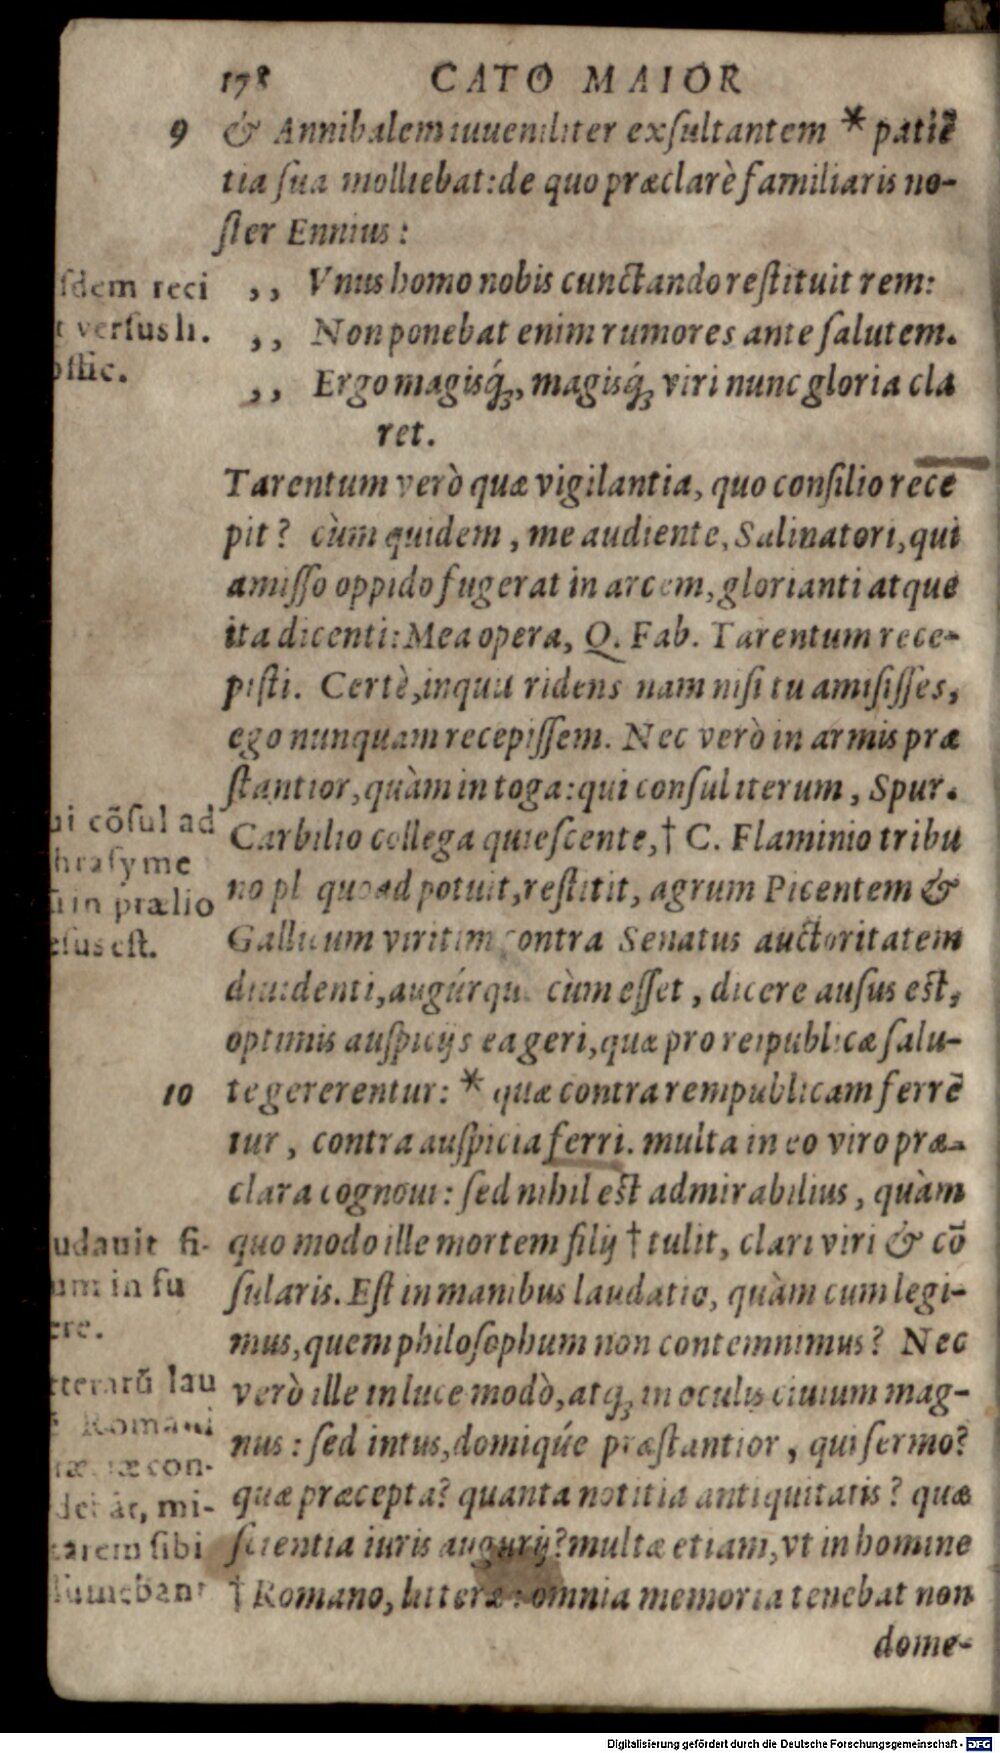 178 CATO MAIOR
9 & Annibalem iuueniliter exsultantem * patiē
tia sua molliebat: de quo præclarè familiaris no-
ster Ennius:
,, Vnus homo nobis cunctando restituit rem:
,, Non ponebat enim rumores ante salutem.
,, Ergo magisq́;, magisq́; viri nunc gloria cla
ret.
Tarentum verò quæ vigilantia, quo consilio rece
pit? cùm quidem, me audiente, Salinatori, qui
amisso oppido fugerat in arcem, glorianti atque
ita dicenti: Mea opera, Q. Fab. Tarentum rece-
pisti. Certè, inquit ridens nam nisi tu amisisses,
ego nunquam recepissem. Nec verò in armis præ
stantior, quàm in toga: qui consul iterum, Spur.
Carbilio collega quiescente, † C. Flaminio tribu
no pl quoad potuit, restitit, agrum Picentem &
Gallicum viritim contra Senatus auctoritatem
diuidenti, augúrqu. cùm esset, dicere ausus est,
optimis auspicijs ea geri, quæ pro reipublicæ salu-
10 te gererentur: * quæ contra rempublicam ferrē
tur, contra auspicia ferri. multa in eo viro præ-
clara cognoui: sed nihil est admirabilius, quàm
quo modo ille mortem filij † tulit, clari viri & cō
sularis. Est in manibus laudatio, quàm cum legi-
mus, quem philosophum non contemnimus? Nec
verò ille in luce modò, atq; in oculis ciuium mag-
nus: sed intus, domiqúe præstantior, qui sermo?
quæ præcepta? quanta notitia antiquitatis? quæ
scientia iuris augurij? multæ etiam, vt in homine
† Romano, litteræ: omnia memoria tenebat non
dome-
sdem reci
t versus li.
offic.
ui cōsul ad
hrasyme
in prælio
esus est.
udauit fi-
um in fu
ere.
tterarū lau
Romani
con-
mi-
tarem sibi
sumebant
Digitalisierung gefördert durch die Deutsche Forschungsgemeinschaft - DFG